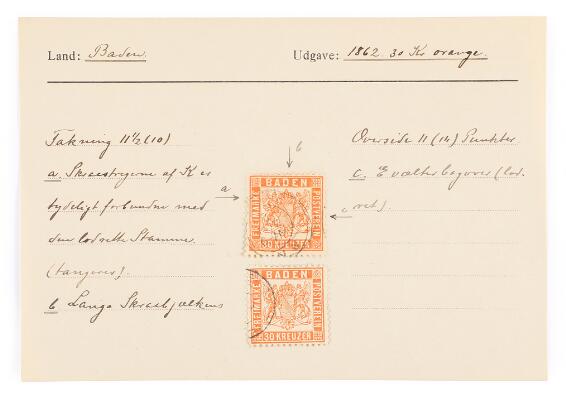 Land: Baden.
Udgave: 1862. 30 Kr orange.
Takning 11½ (10)
a. Skraastregerne af K er
tydeligt forbundne med
den lodrette Stamme
(tangerer).
b Lange Skraabjælkens
Overside 11 (14) Punkter
c. E vælter bagover (lod-
ret).
a
b
c
BADEN
FREIMARKE
POSTVEREIN
30 KREUZER
BADEN
FREIMARKE
POSTVEREIN
30 KREUZER